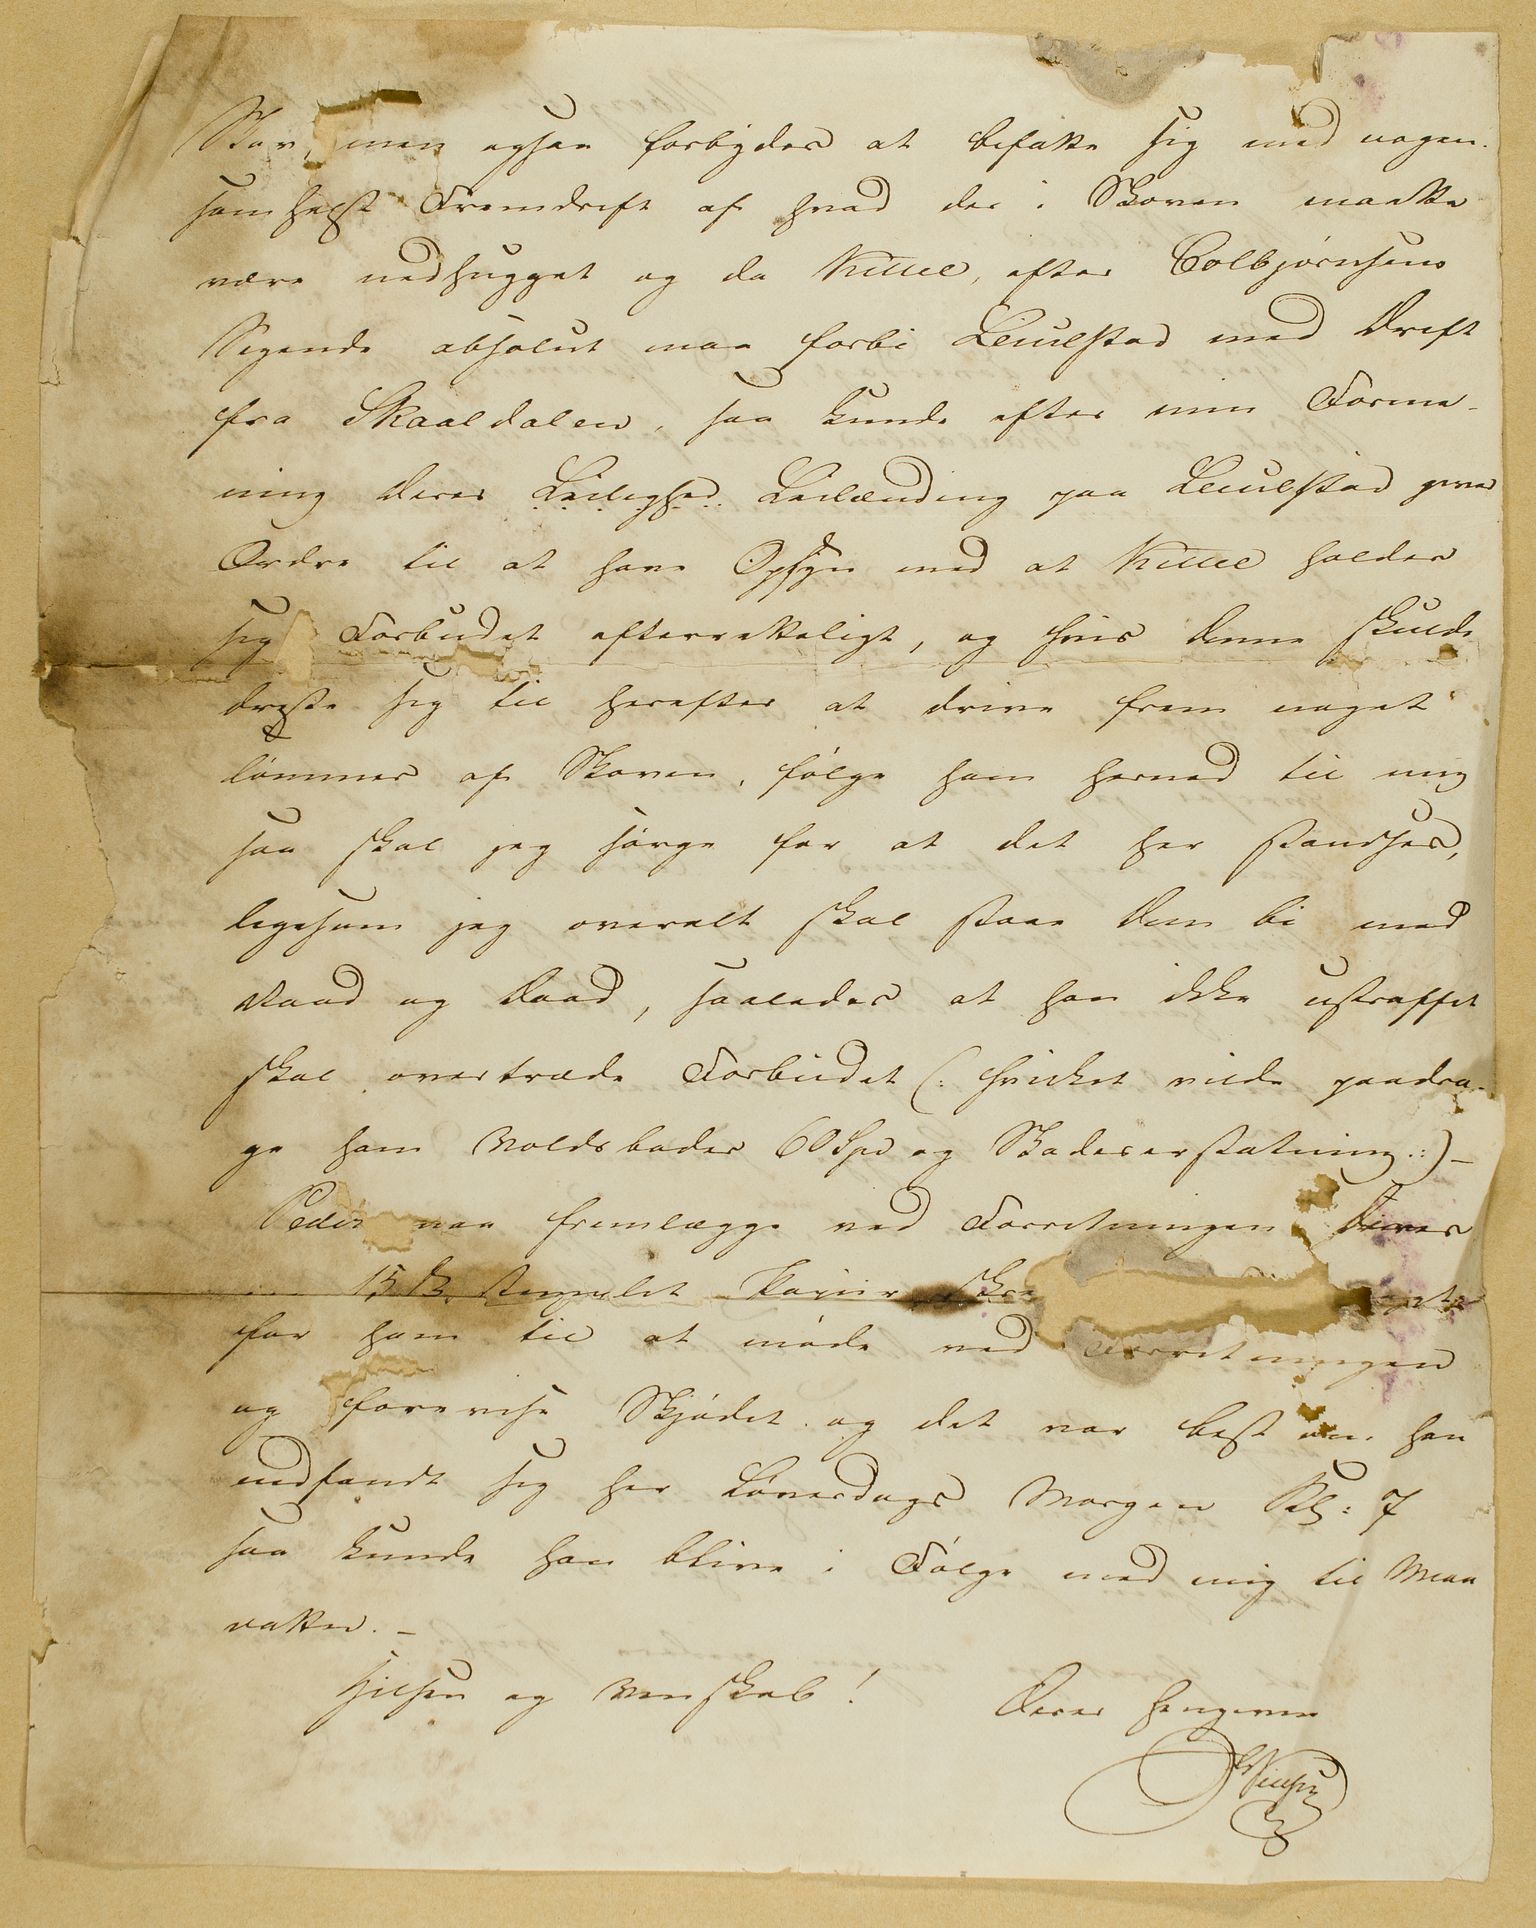 Skov, men ogsaa forbydes at befatte sig med nogen
somhelst Fremdrift af hvad der i Skoven maatte
være nedhugget og da Kulle, efter Colbjørnsens
Sigende absolut maa forbi Leulstad med Drift
fra Skaaldalen, saa kunde efter min Forme-
ning Deres Leilighed Leilænding paa Leulstad gives
Ordre til at have Opsyn med at Kulle holder
sig Forbudet efterretteligt, og hvis denne skulde
drste sig til herefter at drive frem noget
tømmer af Skoven, følge ham herned til mig
saa skal jeg sørge for at det her standses,
ligesom jeg overalt skal staae Dem bi med
Raad og Daad, saaledes at han ikke ustraffet
skal overtræde Forbudet (: hvilket vilde paadra-
ge ham Voldsbøder 60 Spd og Skadeserstatning :) -
Peder maa fremlægge ved Forretningen Deres
15 ß. stemplet Papir
for ham til at møde ved Forretningen
og forevise Skjødet og det var best om han
indfandt sig her Løverdags Morgen Kl: 7
saa kunde han blive i Følge med mig til Maa
natten. -
Hilsen og Venskab!
Deres hengivne